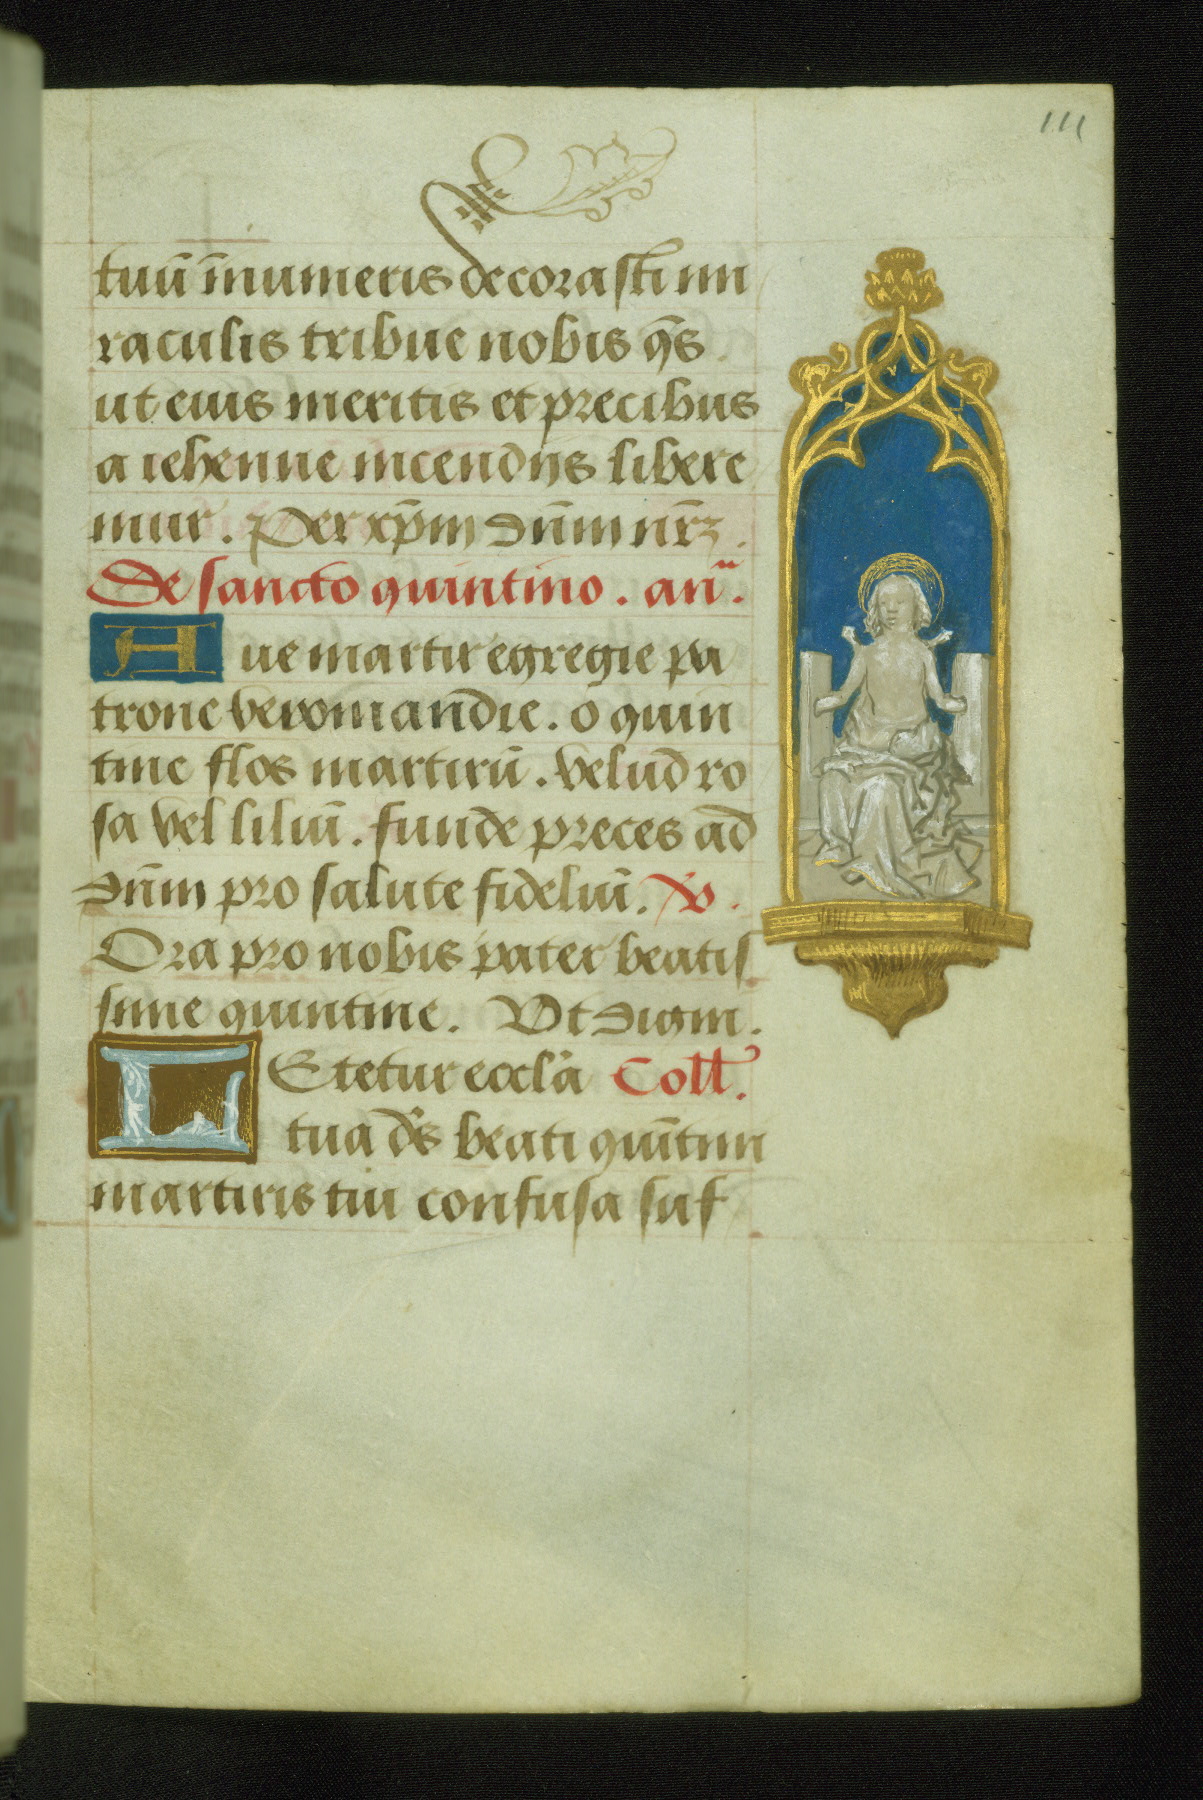 111
tuū īnumeris decorasti mi
raculis tribue nobis q̄s
ut eius meritis et precibus
a iehenne incendijs libere
mur. Per xp̄m dn̄m nr̄ꝫ.
De sancto quintino. an̄.
Aue martir egregie pa
trone veromandie. o quin
tine flos martirū. velud ro
sa vel liliū. funde preces ad
dn̄m pro salute fideliū. V̷.
Ora pro nobis pater beatis
sime quintine. Vt digni.
LEtetur eccl'a Coll'.
tua d's beati quītini
martiris tui confusa suf